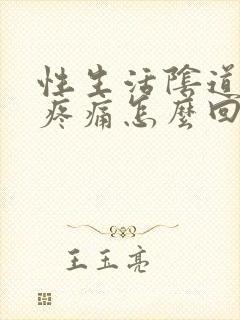 性生活陰道
疼痛怎麼回
王玉亮